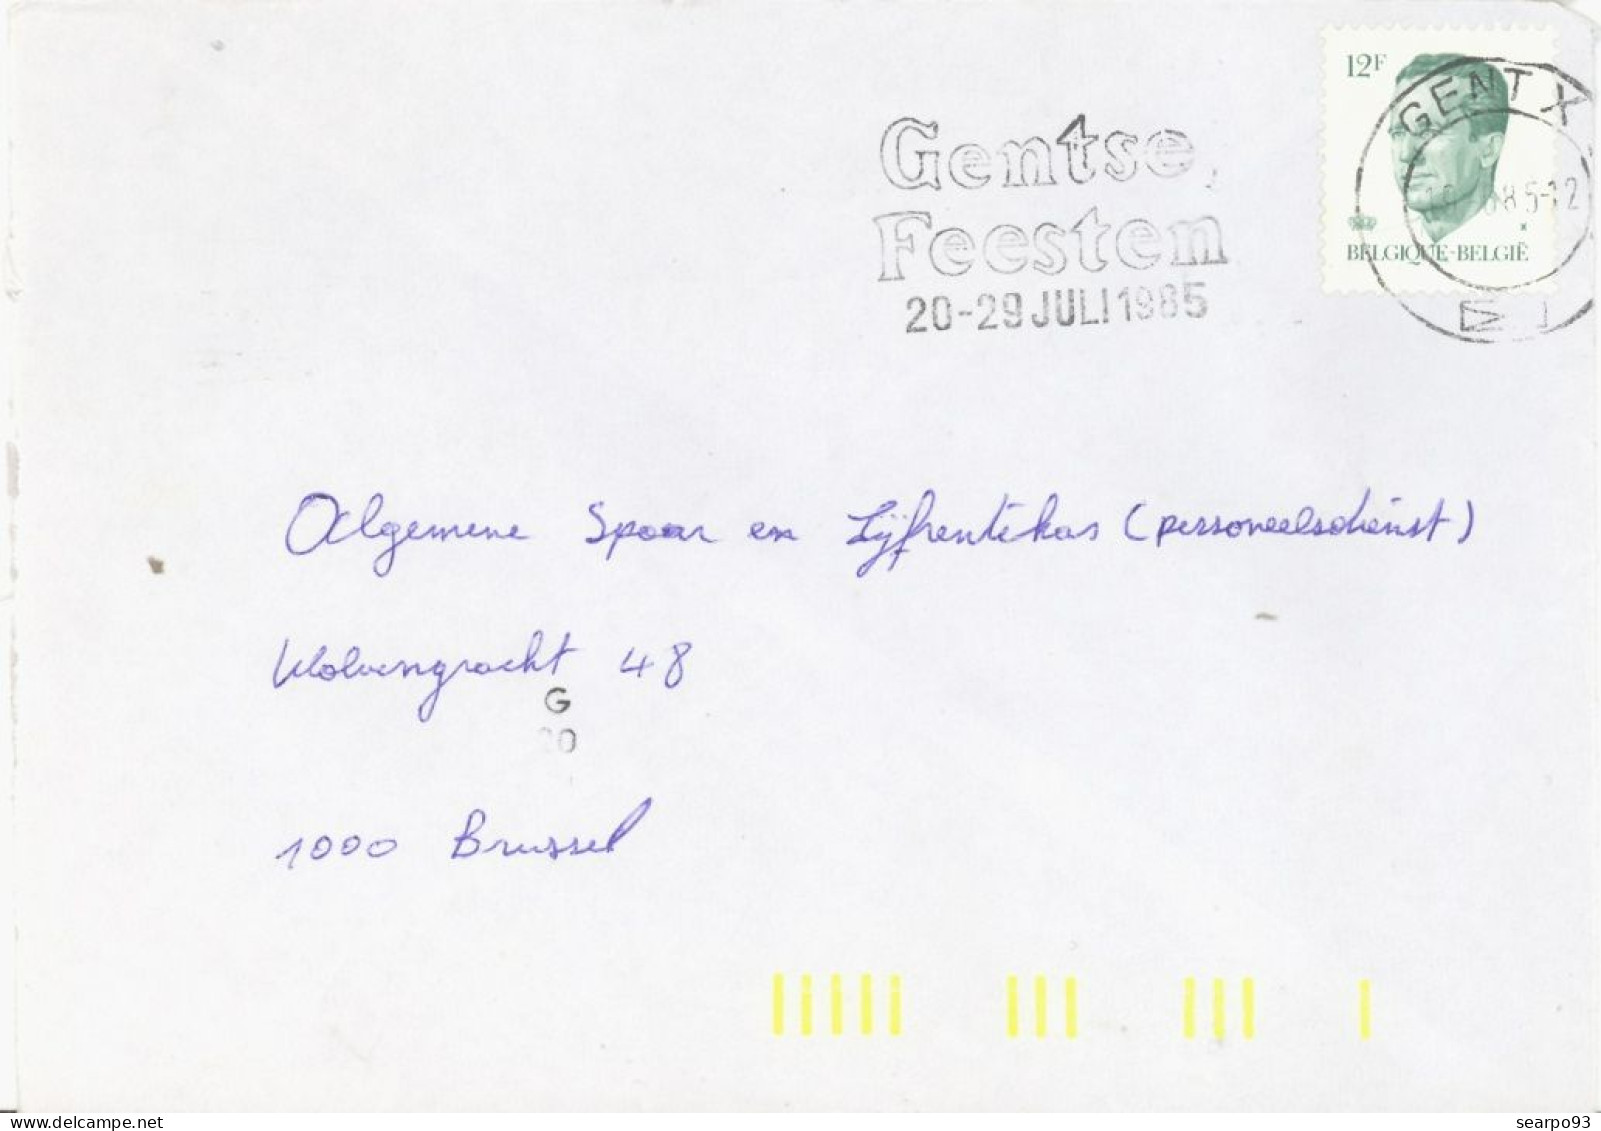 12F
GENT X
85-12
BELGIQUE-BELGIË
Gentse
Feesten
20-29 JULI 1985
Algemene Spaar en Lijfrentekas (personeelsdienst)
Wolvengracht 48
G
1000 Brussel
delcampe.net
searpo93